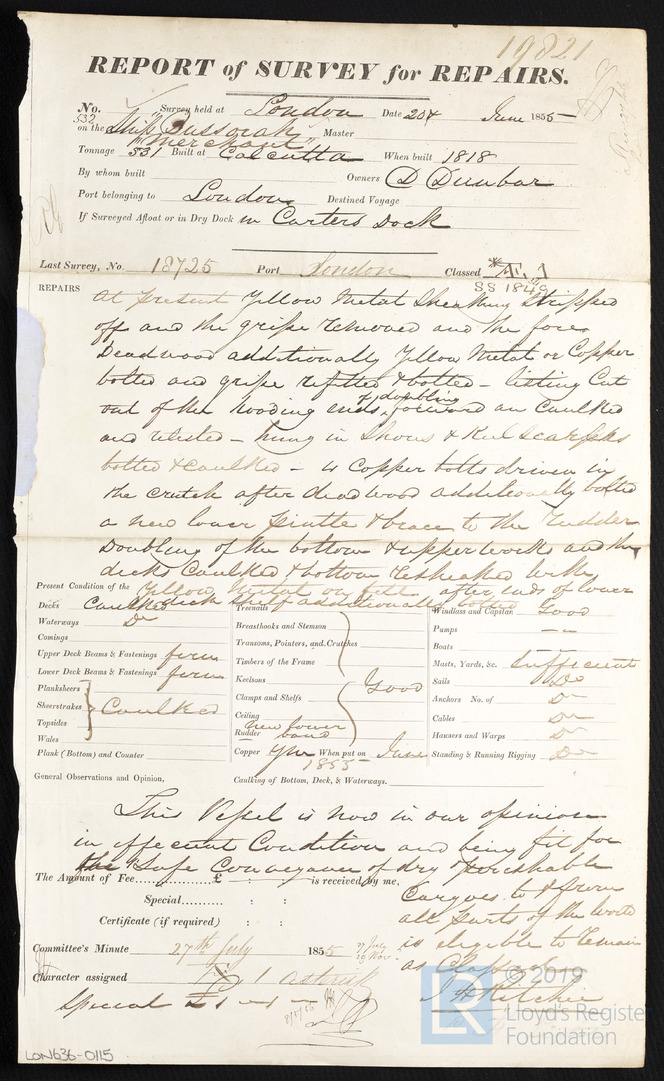 19821
REPORT of SURVEY for REPAIRS.
No. 532 Survey held at London Date 204 June 1855
on the Ship Bussorah Merchant Master
Tonnage 531 Built at Calcutta When built 1818
By whom built Owners D Dunbar
Port belonging to London Destined Voyage
If Surveyed Afloat or in Dry Dock in Carters Dock
Last Survey, No. 18725 Port London Classed *Æ. 1
SS 1849
REPAIRS
At present Yellow Metal Sheathing Stripped
off and the gripe removed and the fore
Deadwood additionally Yellow Metal or Copper
bolted and gripe refitted & bolted – listing Cut
out of the hooding ends & doubling forward an Caulked
and relisted – hung in Shores & Keel Scarfsks
bolted & Caulked – 12 Copper bolts driven in
the crutch after deadwood additionally bolted
a new lower Pintle & brace to the Rudder
Doubling of the bottom & upper works and the
decks Caulked & bottom resheathed with
Yellow Metal on felt after ends of lower
deck shelf additionally bolted
Present Condition of the
Decks Caulked
Waterways Do
Comings
Upper Deck Beams & Fastenings firm
Lower Deck Beams & Fastenings firm
Planksheers
Sheerstrakes Caulked
Topsides
Wales
Plank (Bottom) and Counter
Treenails
Breasthooks and Stemson
Transoms, Pointers, and Crutches
Timbers of the Frame
Keelsons
Clamps and Shelfs Good
Ceiling
Rudder new lower band
Copper YM When put on June 1855
Caulking of Bottom, Deck, & Waterways.
Windlass and Capstan Good
Pumps – –
Boats – –
Masts, Yards, &c. Sufficient
Sails Do
Anchors No. of Do
Cables Do
Hausers and Warps Do
Standing & Running Rigging Do
General Observations and Opinion,
This Vessel is now in our opinion
in efficient Condition and being fit for
the Safe Conveyance of dry & perishable
Cargoes to & from
all parts of the World
is eligible to remain
as Classed
J H Ritchie
The Amount of Fee £ : : is received by me,
Special : :
Certificate (if required) : :
Committee's Minute 27th July 1855
Character assigned Æ 1 asterisk
Special £ 1 – 1 –
© 2019
LR
Lloyd's Register
Foundation
LON636-0115